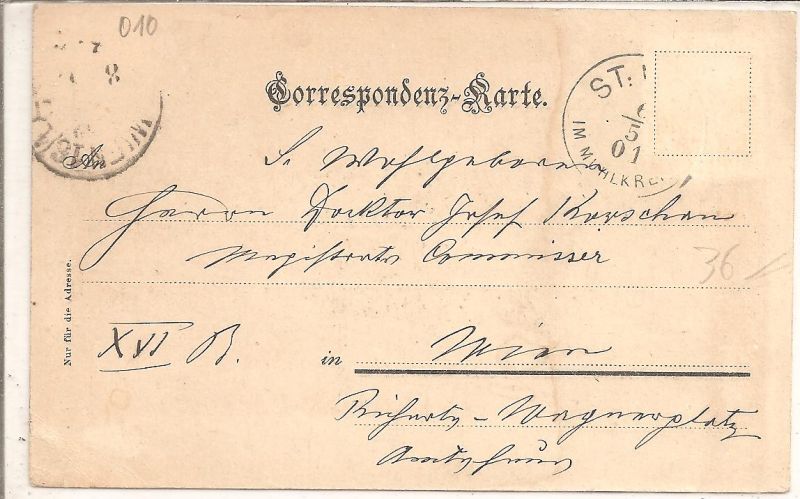 010
Correspondenz-Karte.
ST.
5
01
IM MÜHLKRE
WIEN
An
S. Wohlgeboren
Herrn Docktor Josef Korschan
Magistrats Commissär
36
Nur für die Adresse.
XVI B.
in Wien
Richard-Wagnerplatz
Amtshaus